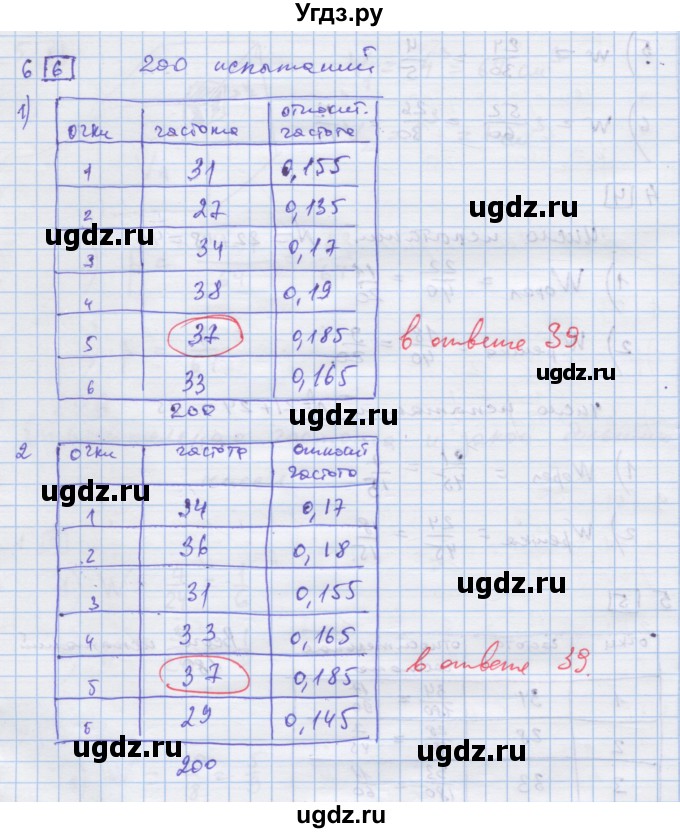 Угдз.ру
6 [6] 200 испытаний
1)
очки частота относит. частота
1 31 0,155
2 27 0,135
3 34 0,17
4 38 0,19
5 37 0,185 в ответе 39.
6 33 0,165
200
2 очки частота относит частота
1 34 0,17
2 36 0,18
3 31 0,155
4 33 0,165
5 37 0,185 в ответе 39.
6 29 0,145
200
ugdz.ru
ugdz.ru
ugdz.ru
ugdz.ru
ugdz.ru
ugdz.ru
ugdz.ru
ugdz.ru
ugdz.ru
ugdz.ru
ugdz.ru
ugdz.ru